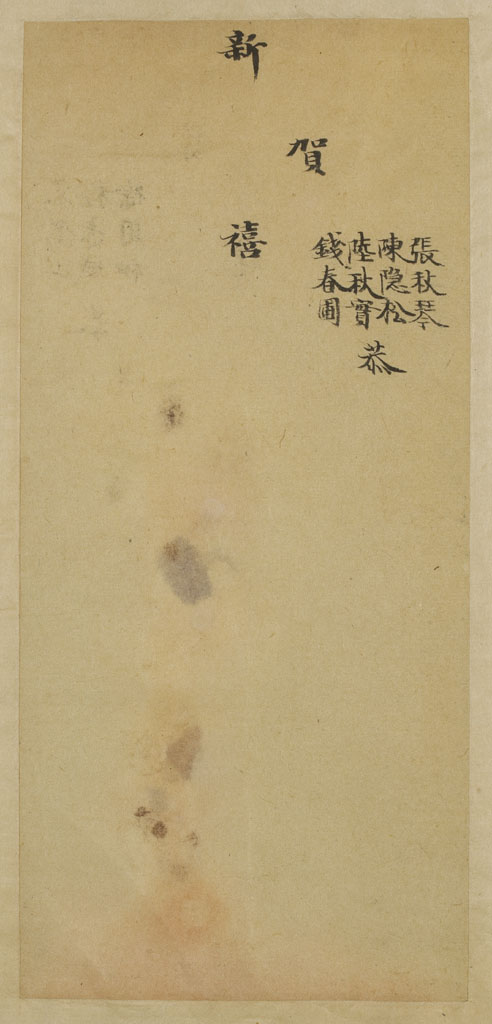 張秋琴
陳隐松
陸秋實
錢春圃
恭
賀
新
禧